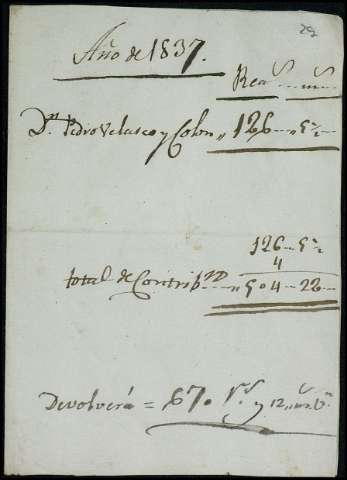 29
Año de 1837.
Rea.s ... m.s
D.n Pedro Velasco y Colon,, 126 ... 5½
126 ... 5½
4
total de Contrib.on ... ,, 504 ... 22 ...
Devolverá = 670 r.s y 12 ,, m.s v.n